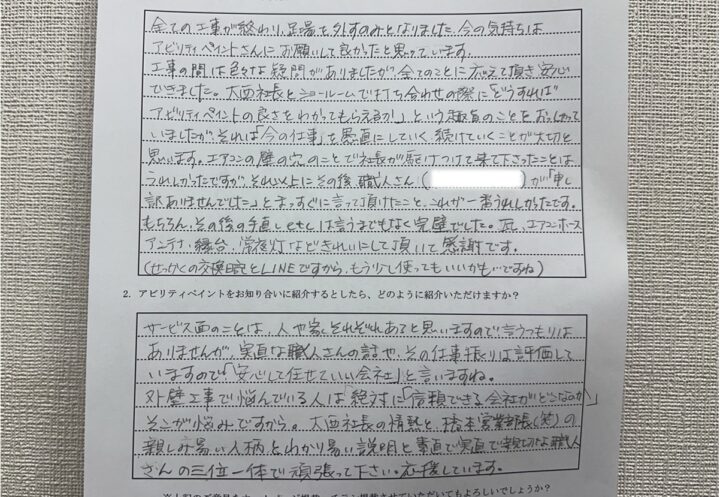 全ての工事が終わり、足場を外すのみとなりました。今の気持ちは
アビリティペイントさんにお願いして良かったと思っています。
工事の間は色々な疑問がありましたが、全てのことに応えて頂き安心
できました。大西社長とショールームで打ち合わせの際に「どうすれば
アビリティペイントの良さをわかってもらえるか!」という趣旨のことをおっしゃって
いましたが、それは「今の仕事」を愚直にしていく、続けていくことが大切と
思います。エアコンの壁の穴のことで社長が駆けつけて来て下さったことは
うれしかったですが、それ以上にその後 職人さん ( ) が「申し
訳ありませんでした」とまっすぐに言って頂けたこと、これが一番うれしかったです。
もちろん、その後の手直しetcは言うまでもなく完璧でした。瓦、エアコンホース
アンテナ、縁台、常夜灯などきれいにして頂いて感謝です。
(せっかくの交換日記とLINEですから、もう少し使ってもいいかも…ですね)
2. アビリティペイントをお知り合いに紹介するとしたら、どのように紹介いただけますか?
サービス面のことは、人や家、それぞれあると思いますので言うつもりは
ありませんが、実直な職人さんの話や、その仕事振りは評価して
いますので「安心して任せていい会社」と言いますね。
外壁工事で悩んでいる人は「絶対に「信頼できる会社がどこなのか」
そこが悩みですから。大西社長の情熱と、橋本営業部長(笑)の
親しみ易い人柄とわかり易い説明と素直で実直で親切な職人
さんの三位一体で頑張って下さい。応援しています。